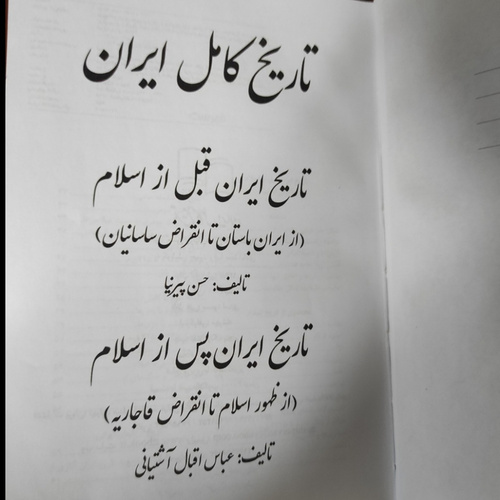 تاریخ کامل ایران
تاریخ ایران قبل از اسلام
(از ایران باستان تا انقراض ساسانیان)
تالیف: حسن پیرنیا
تاریخ ایران پس از اسلام
(از ظهور اسلام تا انقراض قاجاریه)
تالیف: عباس اقبال آشتیانی